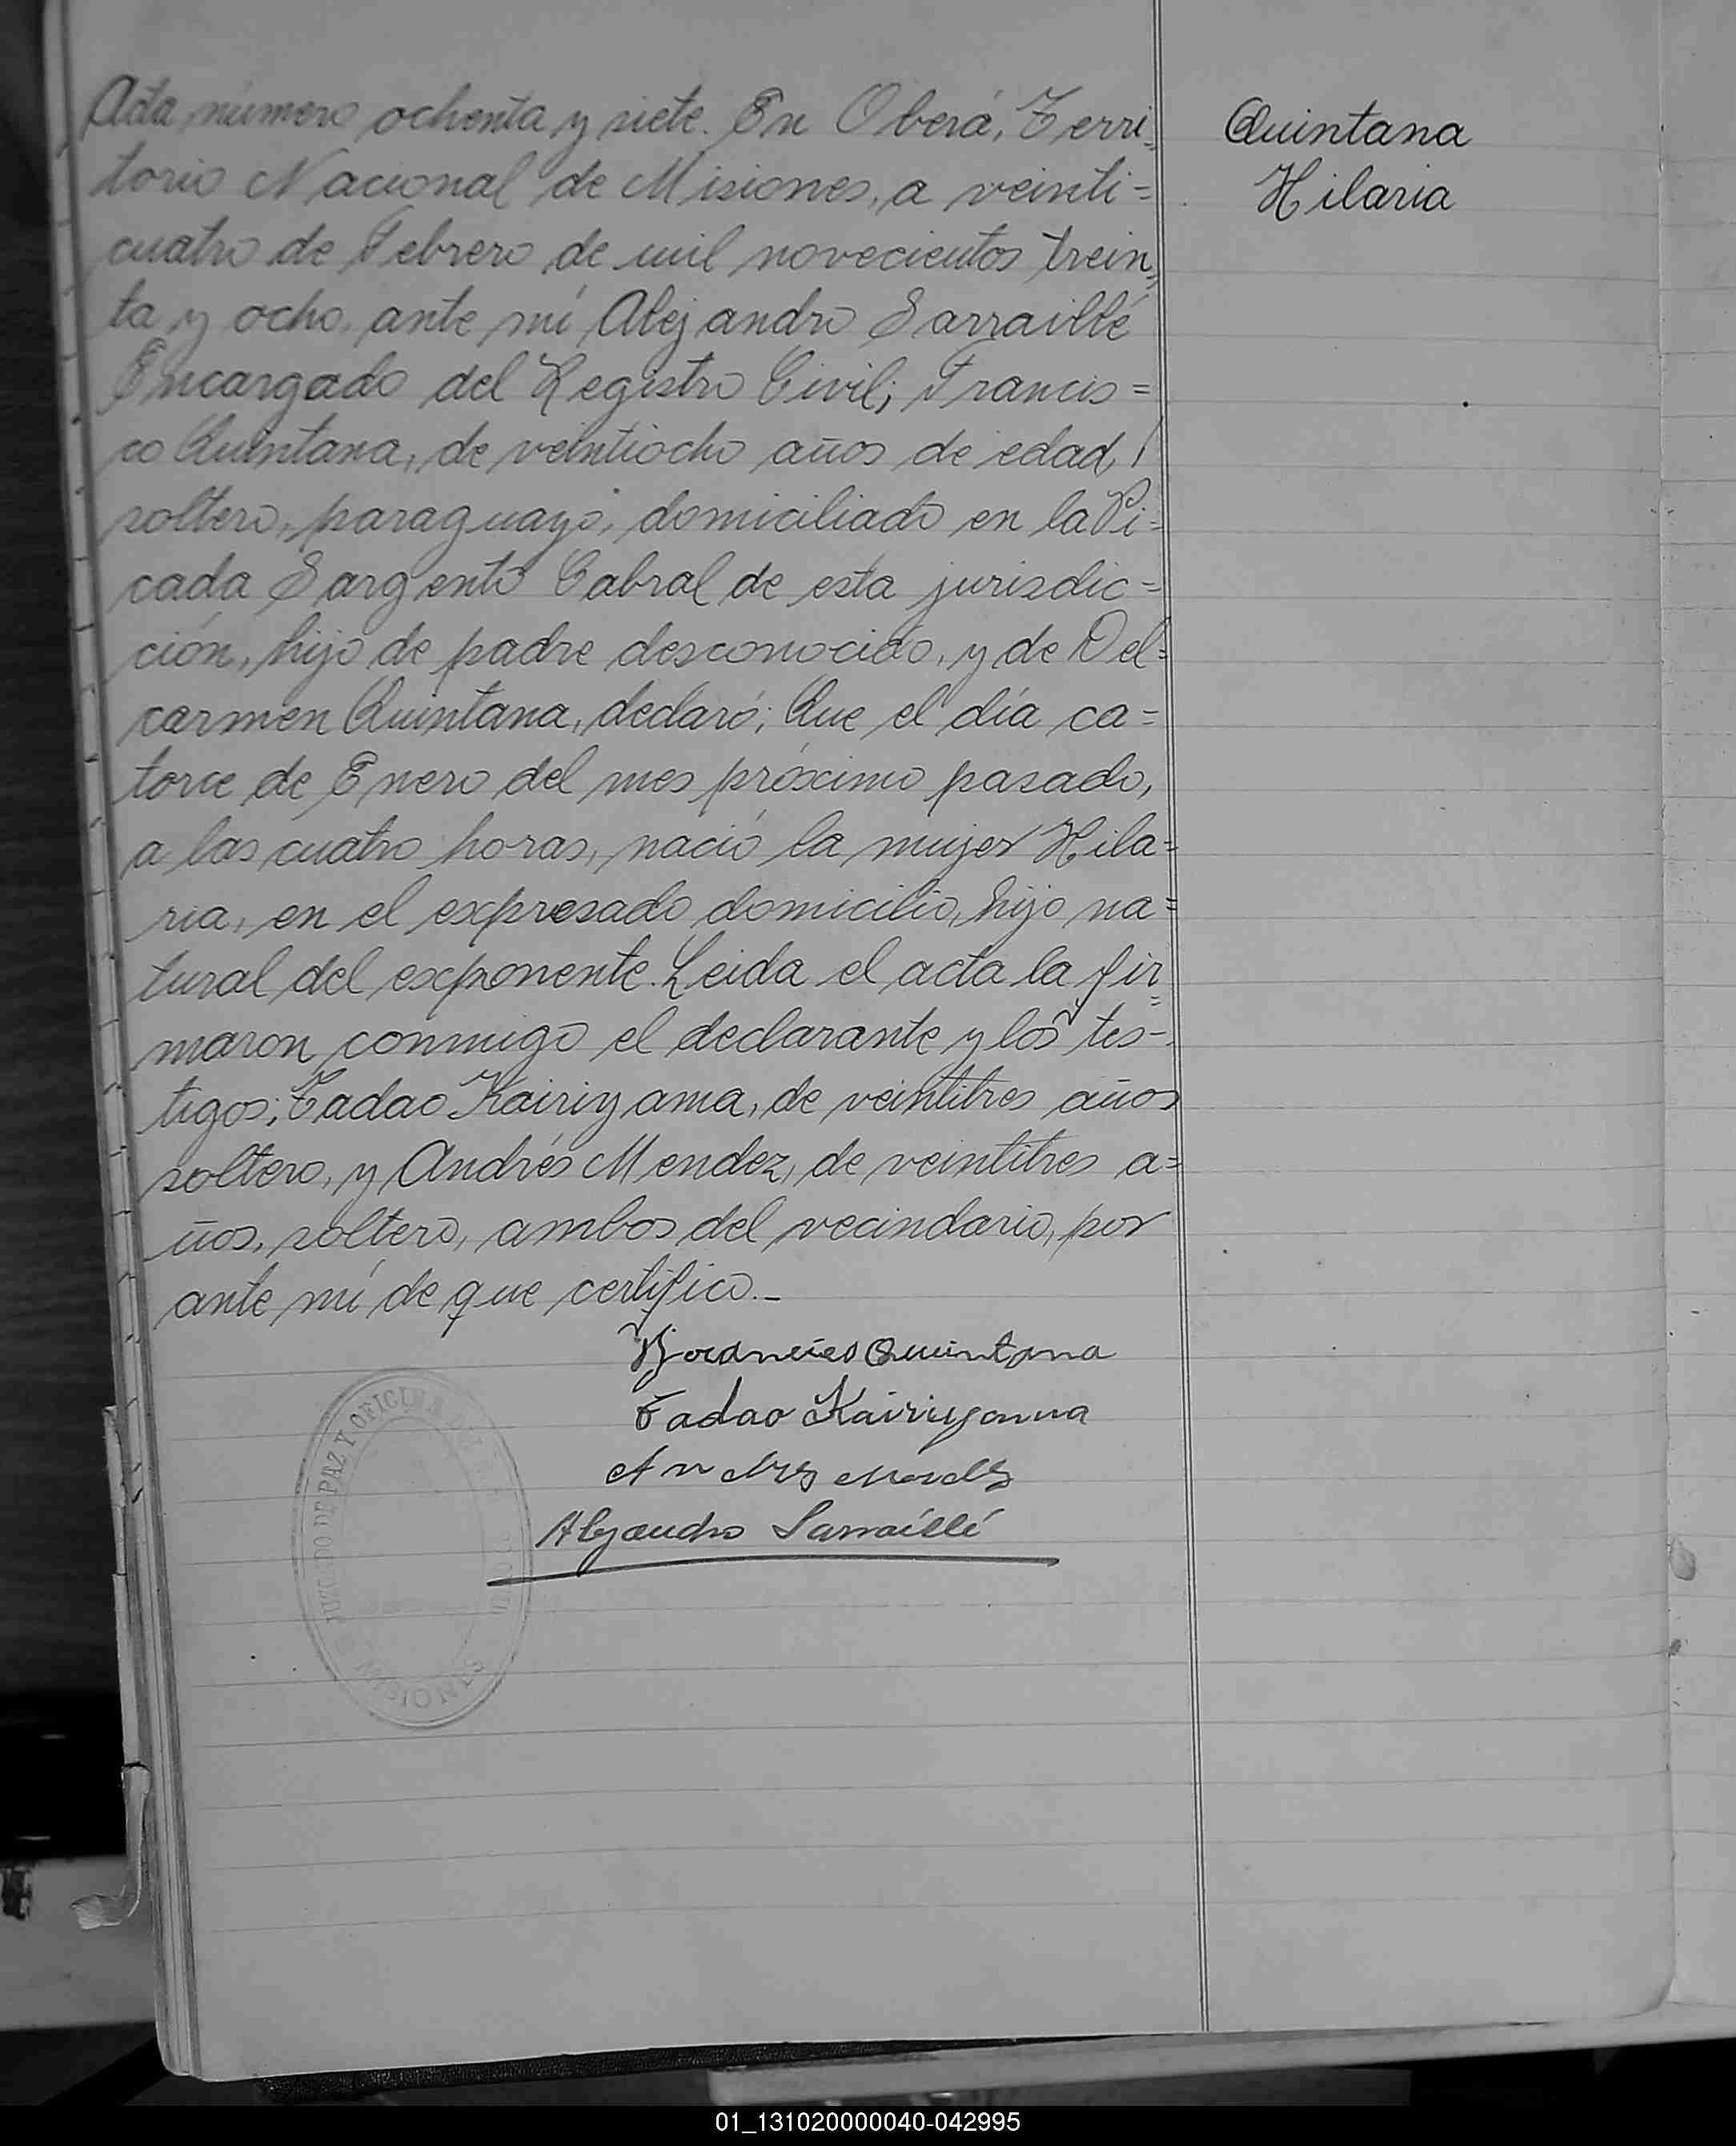 Acta número ochenta y siete. En Oberá, Terri=
torio Nacional de Misiones, a veinti=
cuatro de Febrero de mil novecientos trein=
ta y ocho, ante mí Alejandro Sarraillé
Encargado del Registro Civil; Francis=
co Quintana, de veintiocho años de edad,
soltero, paraguayo, domiciliado en la Pi=
cada Sargento Cabral de esta jurisdic=
ción, hijo de padre desconocido, y de Del=
carmen Quintana, declaró; Que el día ca=
torce de Enero del mes próximo pasado,
a las cuatro horas, nació la mujer Hila=
ria, en el expresado domicilio, hijo na=
tural del exponente. Leida el acta la fir=
maron conmigo el declarante y los tes-
tigos; Tadao Kairiyama, de veintitres años
soltero, y Andrés Mendez, de veintitres a=
ños, soltero, ambos del vecindario, por
ante mí de que certifico._
Quintana
Tadao Kairiyama
Alejandro Sarraillé
Quintana
Hilaria
JUZGADO DE PAZ Y OFICINA
MISIONES
01_131020000040-042995